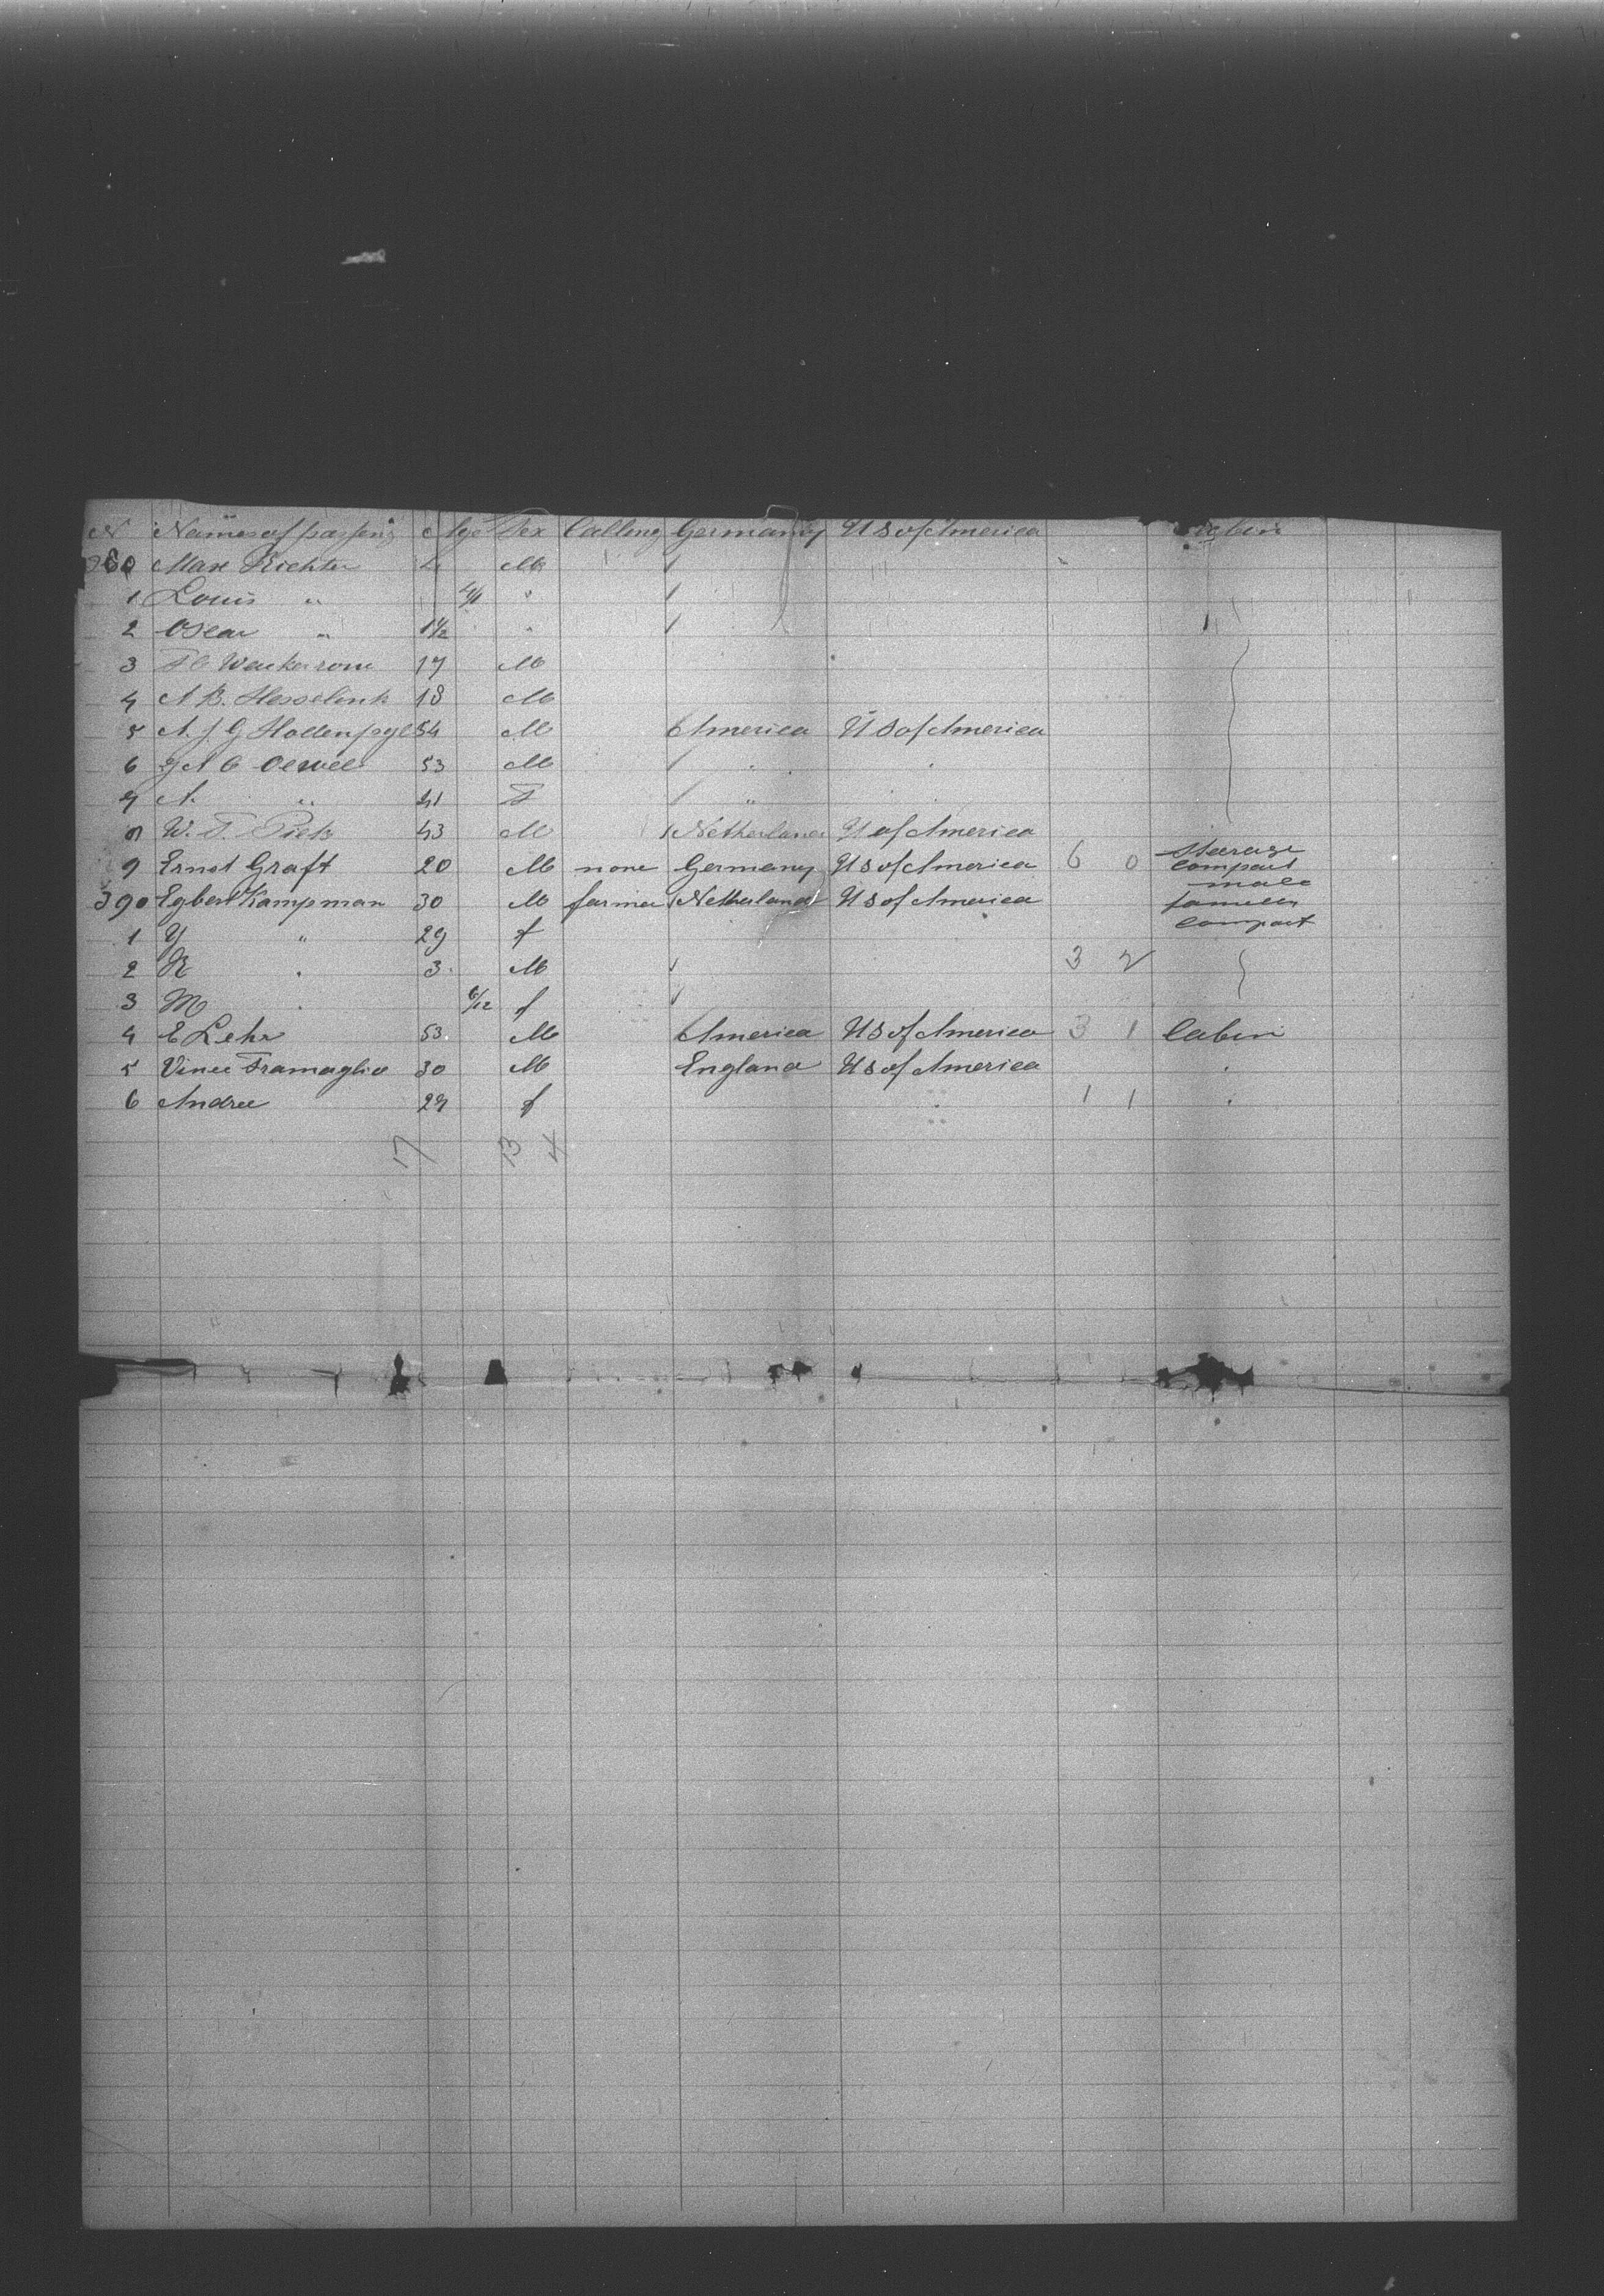 N Names of passeng Age Sex Calling Germany US of America Cabin
380 Max Richter 4 M
1 Louis " "
2 Oscar " 1 1/2 "
3 17 M
4 A B. Hesselink 18 M
5 A. J. G 54 M America US of America
6 53 M " "
7 A. " 41 F " "
8 W. F. Piek 43 M Netherland U of America
9 Ernst Graft 20 M none Germany US of America 6 0 Steerage compart male
390 Egbert Kampman 30 M farmer Netherland US of America famelen compart
1 Y " 29 f
2 R " 3 M 3 2
3 M " 6/12 f
4 E Lehr 53 M America US of America 3 1 Cabin
5 Vince Tramaglio 30 M England US of America "
6 Andree 29 f " 1 1 "
17 13 4